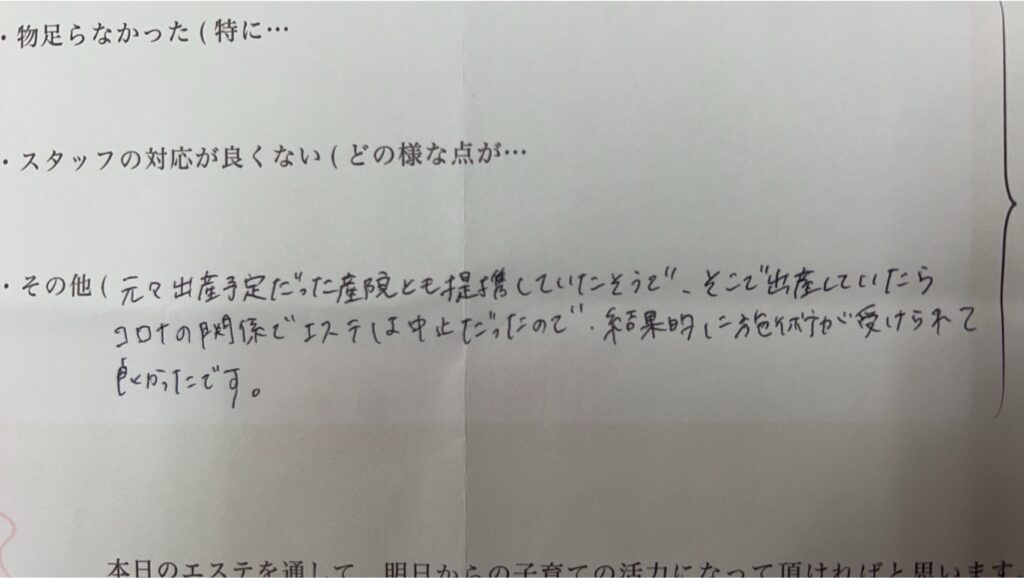 ・物足らなかった ( 特に…
・スタッフの対応が良くない ( どの様な点が…
・その他 ( 元々出産予定だった産院とも提携していたそうで、そこで出産していたら
コロナの関係でエステは中止だったので、結果的に施術が受けられて
良かったです。
本日のエステを通して、明日からの子育ての活力になって頂ければと思います